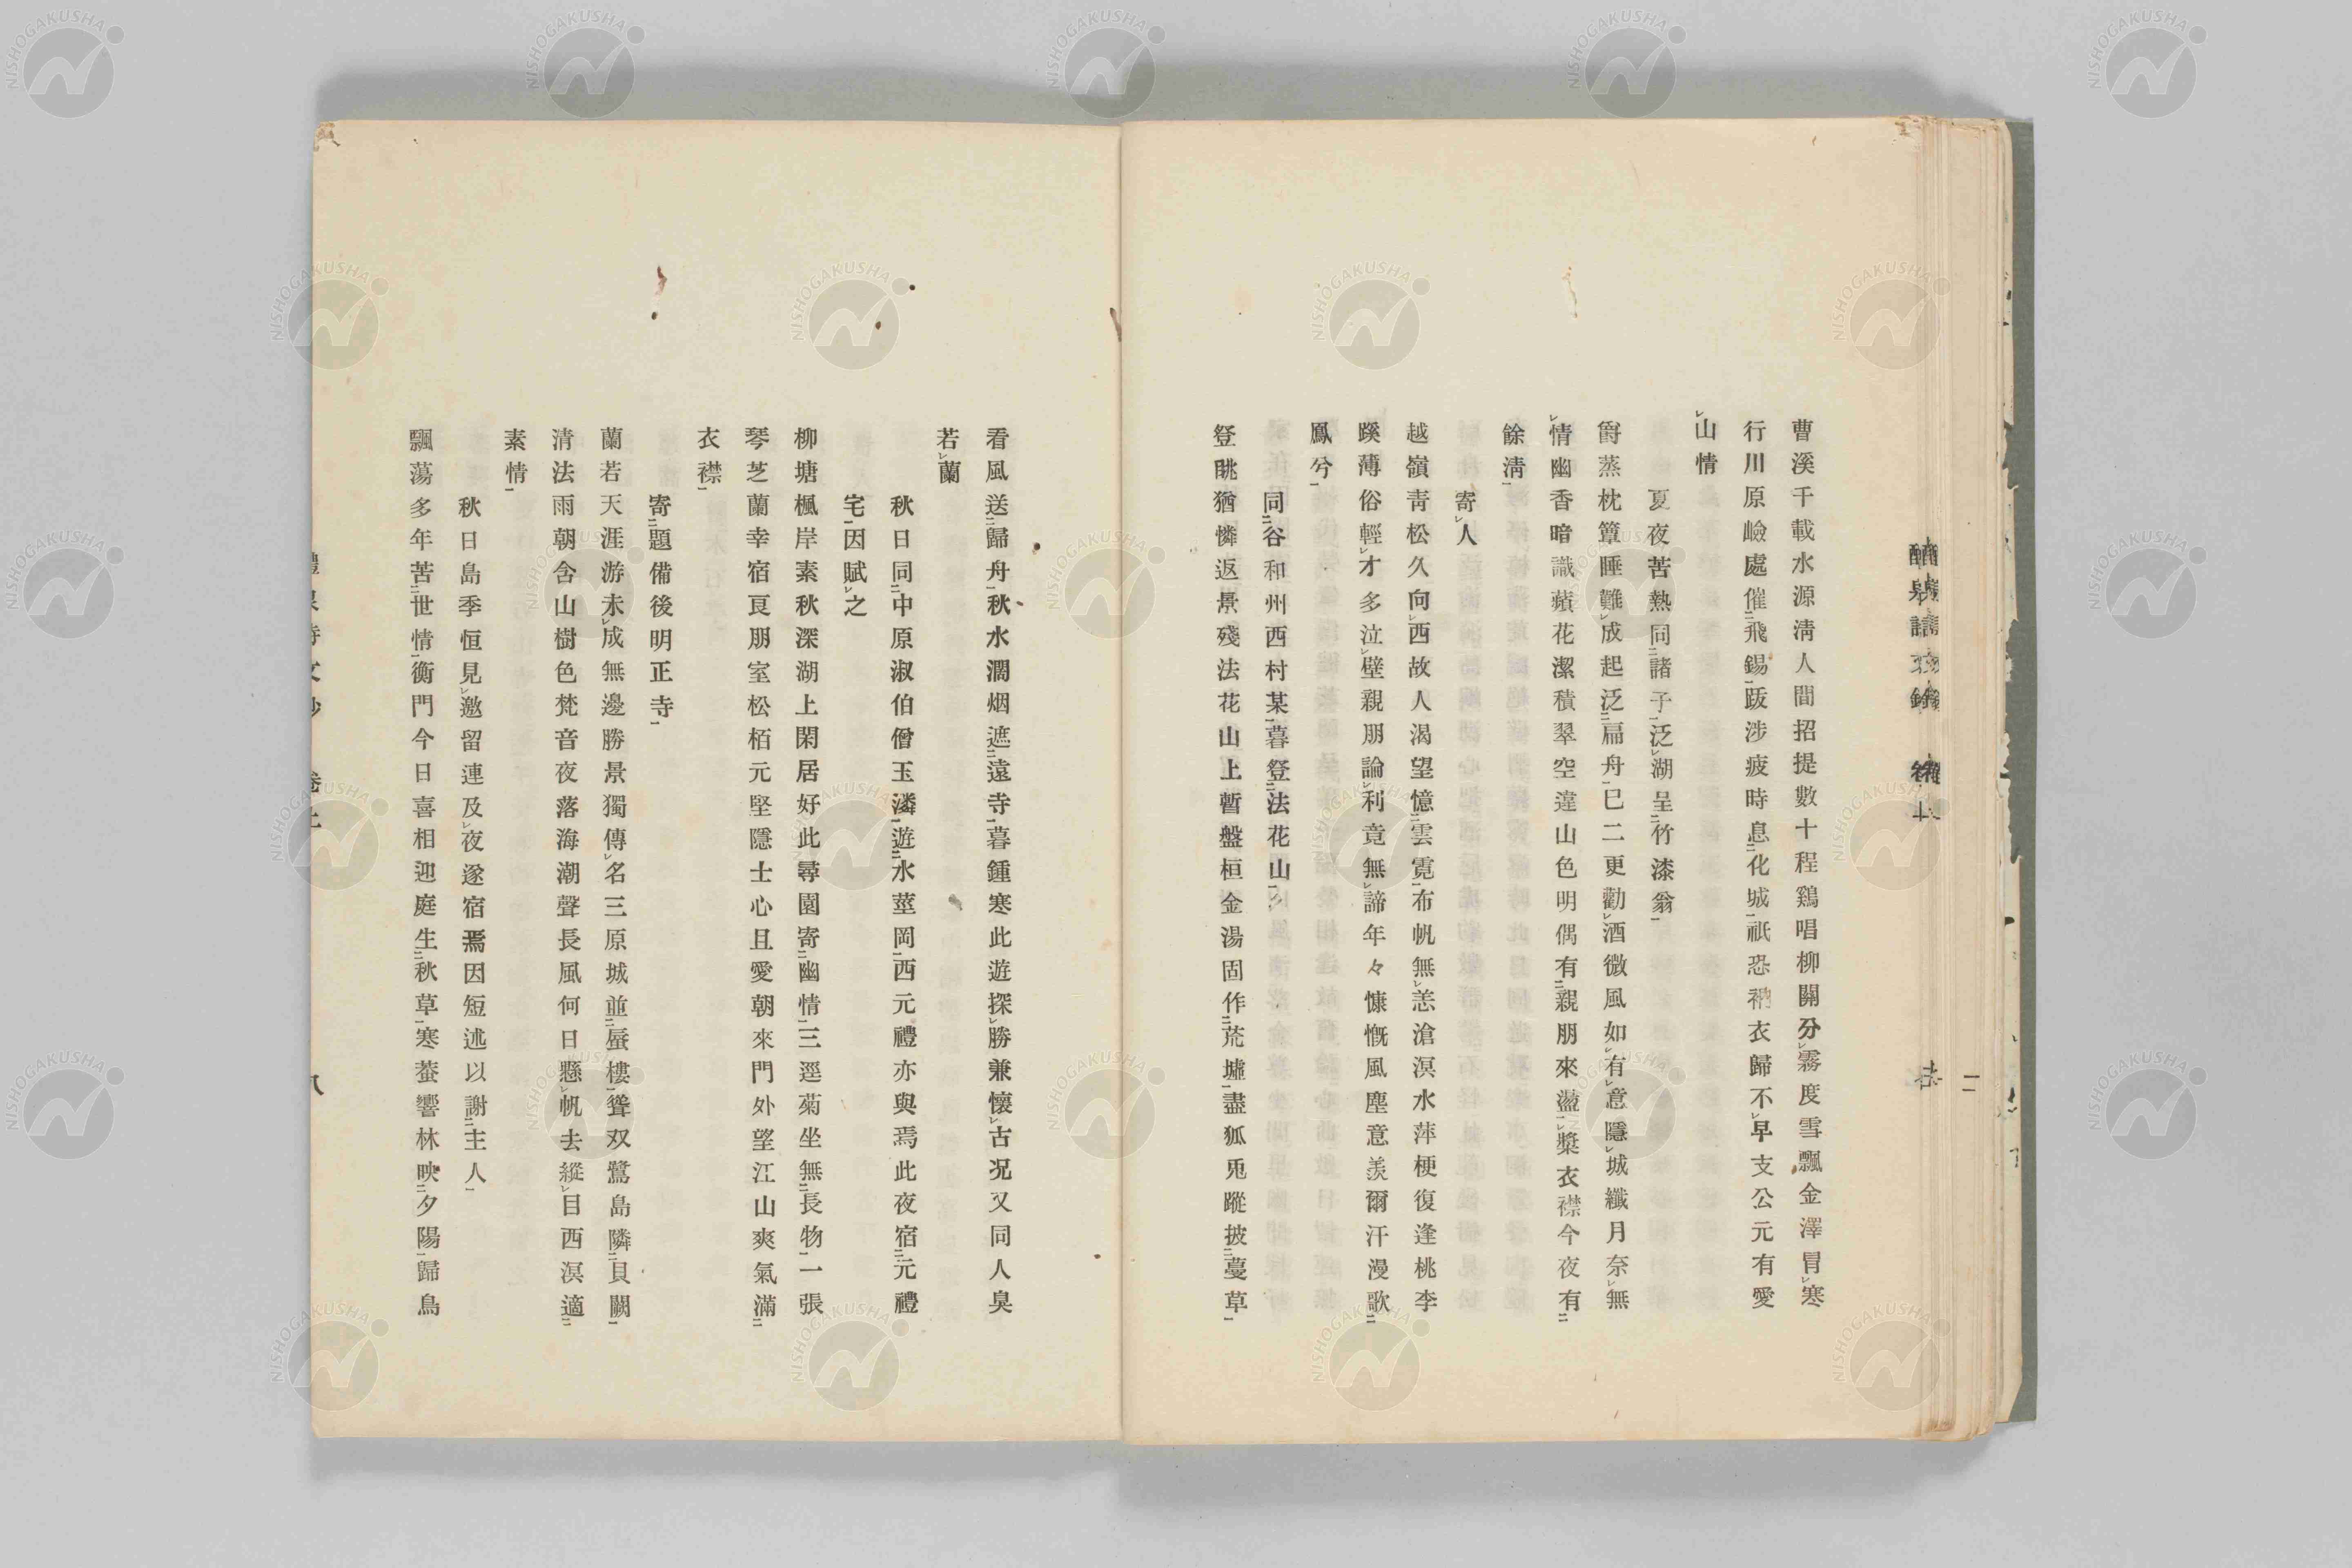 曹溪千載水源淸人間招提數十程鷄唱柳關分㆑霧度雪飄金澤冐㆑寒
行川原嶮處催㆓飛錫㆒跋涉疲時息㆓化城㆒祇恐衲衣歸不㆑早支公元有愛
㆑山情
夏夜苦熱同㆓諸子㆒泛㆑湖呈㆓竹漆翁㆒
爵蒸枕簟睡難㆑成起泛㆓扁舟㆒已二更勸㆑酒微風如㆑有㆑意隱㆑城纖月奈㆑無
㆑情幽香暗識蘋花潔積翠空違山色明偶有㆓親朋來盪㆒㆑槳衣襟今夜有㆓
餘淸㆒
寄㆑人
越嶺靑松久向㆑西故人渴望憶㆓雲霓㆒布帆無㆑恙滄溟水萍梗復逢桃李
蹊薄俗輕㆑才多泣㆑壁親朋論㆑利竟無㆑諦年々慷慨風塵意羨爾汗漫歌㆓
鳳兮㆒
同㆓谷和州西村某㆒暮登㆓法花山㆒
登眺猶憐返景殘法花山上暫盤桓金湯固作㆓荒墟㆒盡狐兎蹤披㆓蔓草㆒
看風送㆓歸舟㆒秋水濶烟遮㆓遠寺㆒暮鍾寒此遊探㆑勝兼懷㆑古况又同人臭
若㆑蘭
秋日同㆓中原淑伯僧玉潾㆒遊㆓水莖岡㆒西元禮亦與焉此夜宿㆓元禮
宅㆒因賦㆑之
柳塘楓岸素秋深湖上閑居好此尋園寄㆓幽情㆒三逕菊坐無㆓長物㆒一張
琴芝蘭幸宿良朋室松栢元堅隱士心且愛朝來門外望江山爽氣滿㆓
衣襟㆒
寄㆓題備後明正寺㆒
蘭若天涯游未㆑成無邊勝景獨傳㆑名三原城並㆓蜃樓㆒聳双鷺島隣㆓貝闕㆒
淸法雨朝含山樹色梵音夜落海潮聲長風何日懸㆑帆去縱㆑目西溟適㆓
素情㆒
秋日島季恒見㆑邀留連及㆑夜遂宿焉因短述以謝㆓主人㆒
飄蕩多年苦㆓世情㆒衡門今日喜相迎庭生㆓秋草㆒寒蛩響林映㆓夕陽㆒歸鳥